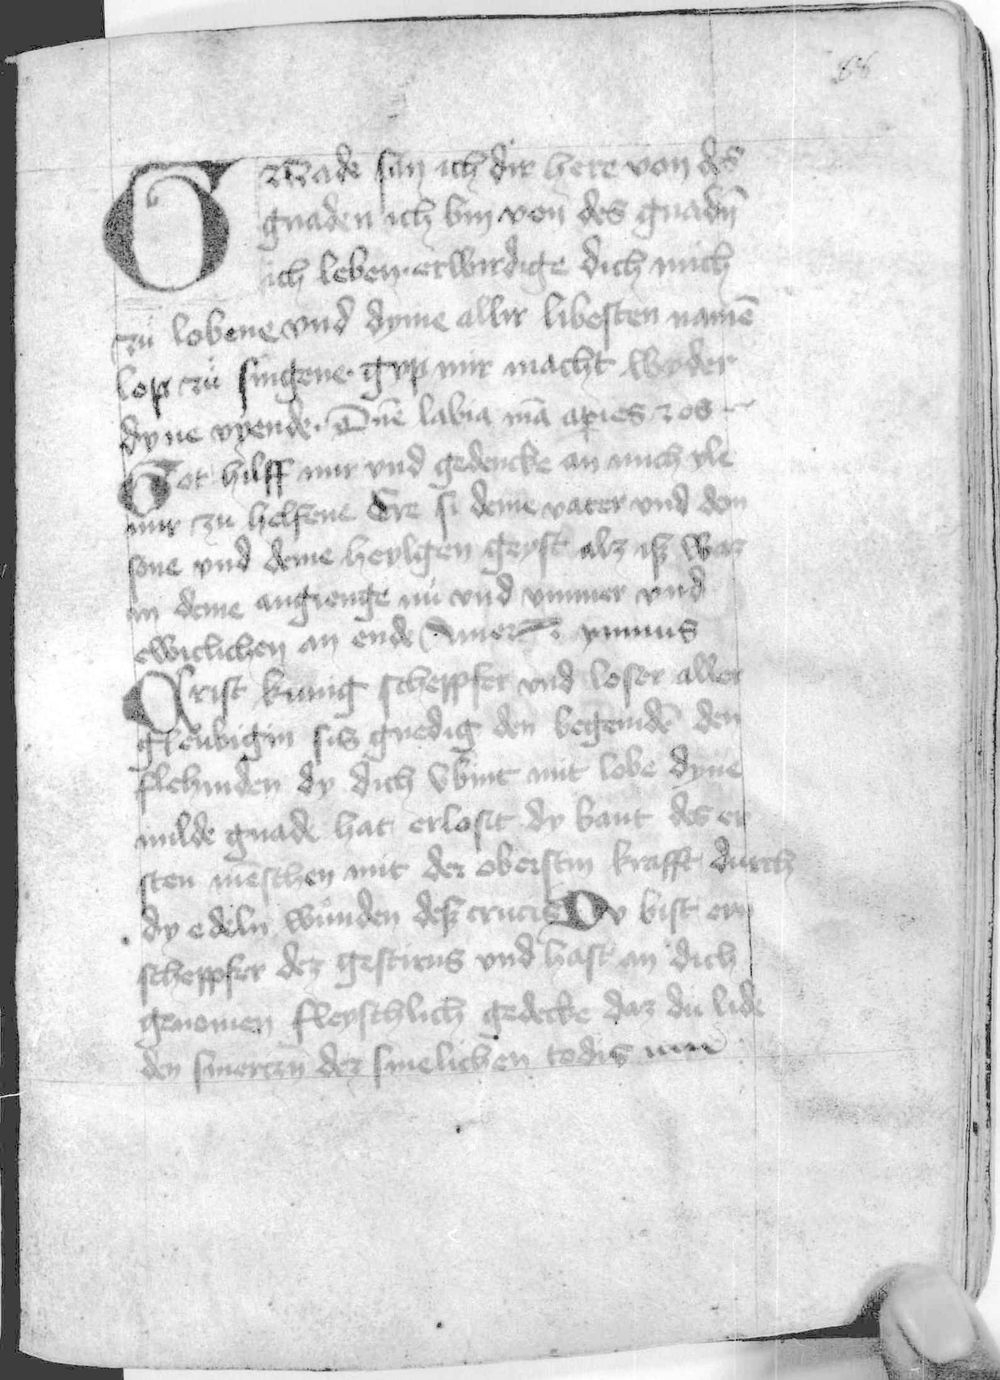 88
GNade sin ich dir here von des
gnaden ich bin von des gnadn̄
ich leben · erwirdige dich mich
zu lobene vnd dyme allir libesten namē
lop zu singene · gyp mir macht wyder
dyne vyende · Dn̄e labia mā apies ⁊ os
Got hilff mir vnd gedencke an mich yle
mir zu helfene Ere si deme vater vnd dem
sone vnd deme heylgen geyst alz iz waz
in deme angenge nu vnd ymmer vnd
ewiclichen an ende Amen · ymnus
Crist kunig scheppfer vnd loser aller
gleubigin sis gnedig den begerndē den
flehinden dy dich vbint mit lobe dyne
milde gnade hat erlost dy bant des er
sten mēschen mit der oberstin krafft durch
dy edeln wunden desz crucis Dv bist eyn
scheppfer dez gestirns vnd hast an dich
genomen fleyschlich gedecke daz du lide
den smerczn̄ dez smelichen todis